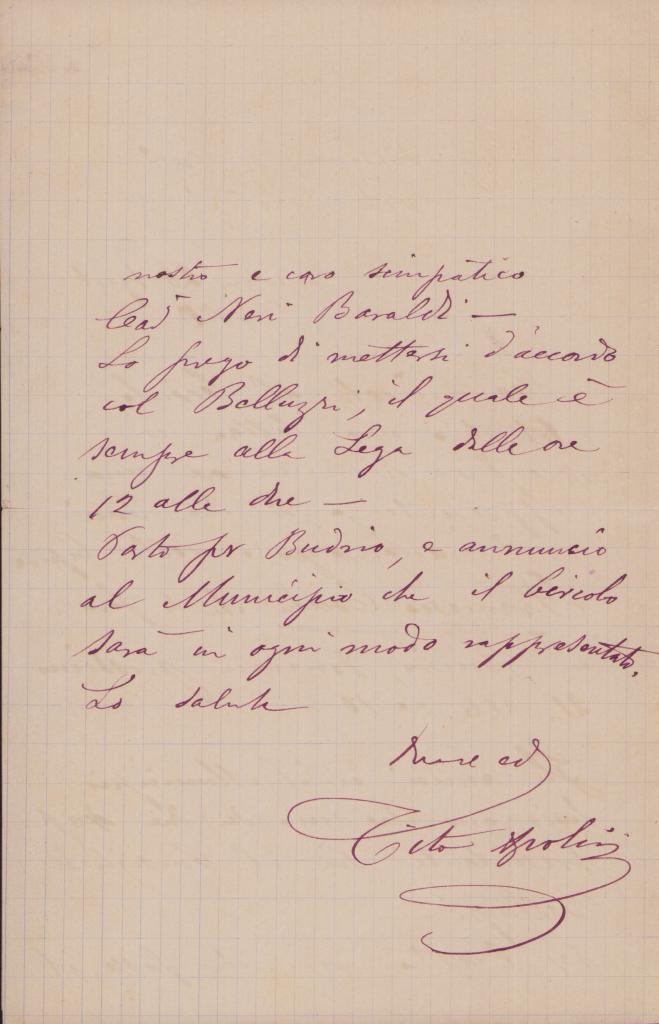 nostro e caro simpatico
Neri Baraldi —
Lo prego di mettersi d'accordo
col Belluzzi, il quale è
sempre alla Lega dalle ore
12 alle due —
Parto per Budrio, e annuncio
al Municipio che il Circolo
sarà in ogni modo rappresentato.
Lo saluta
Tito